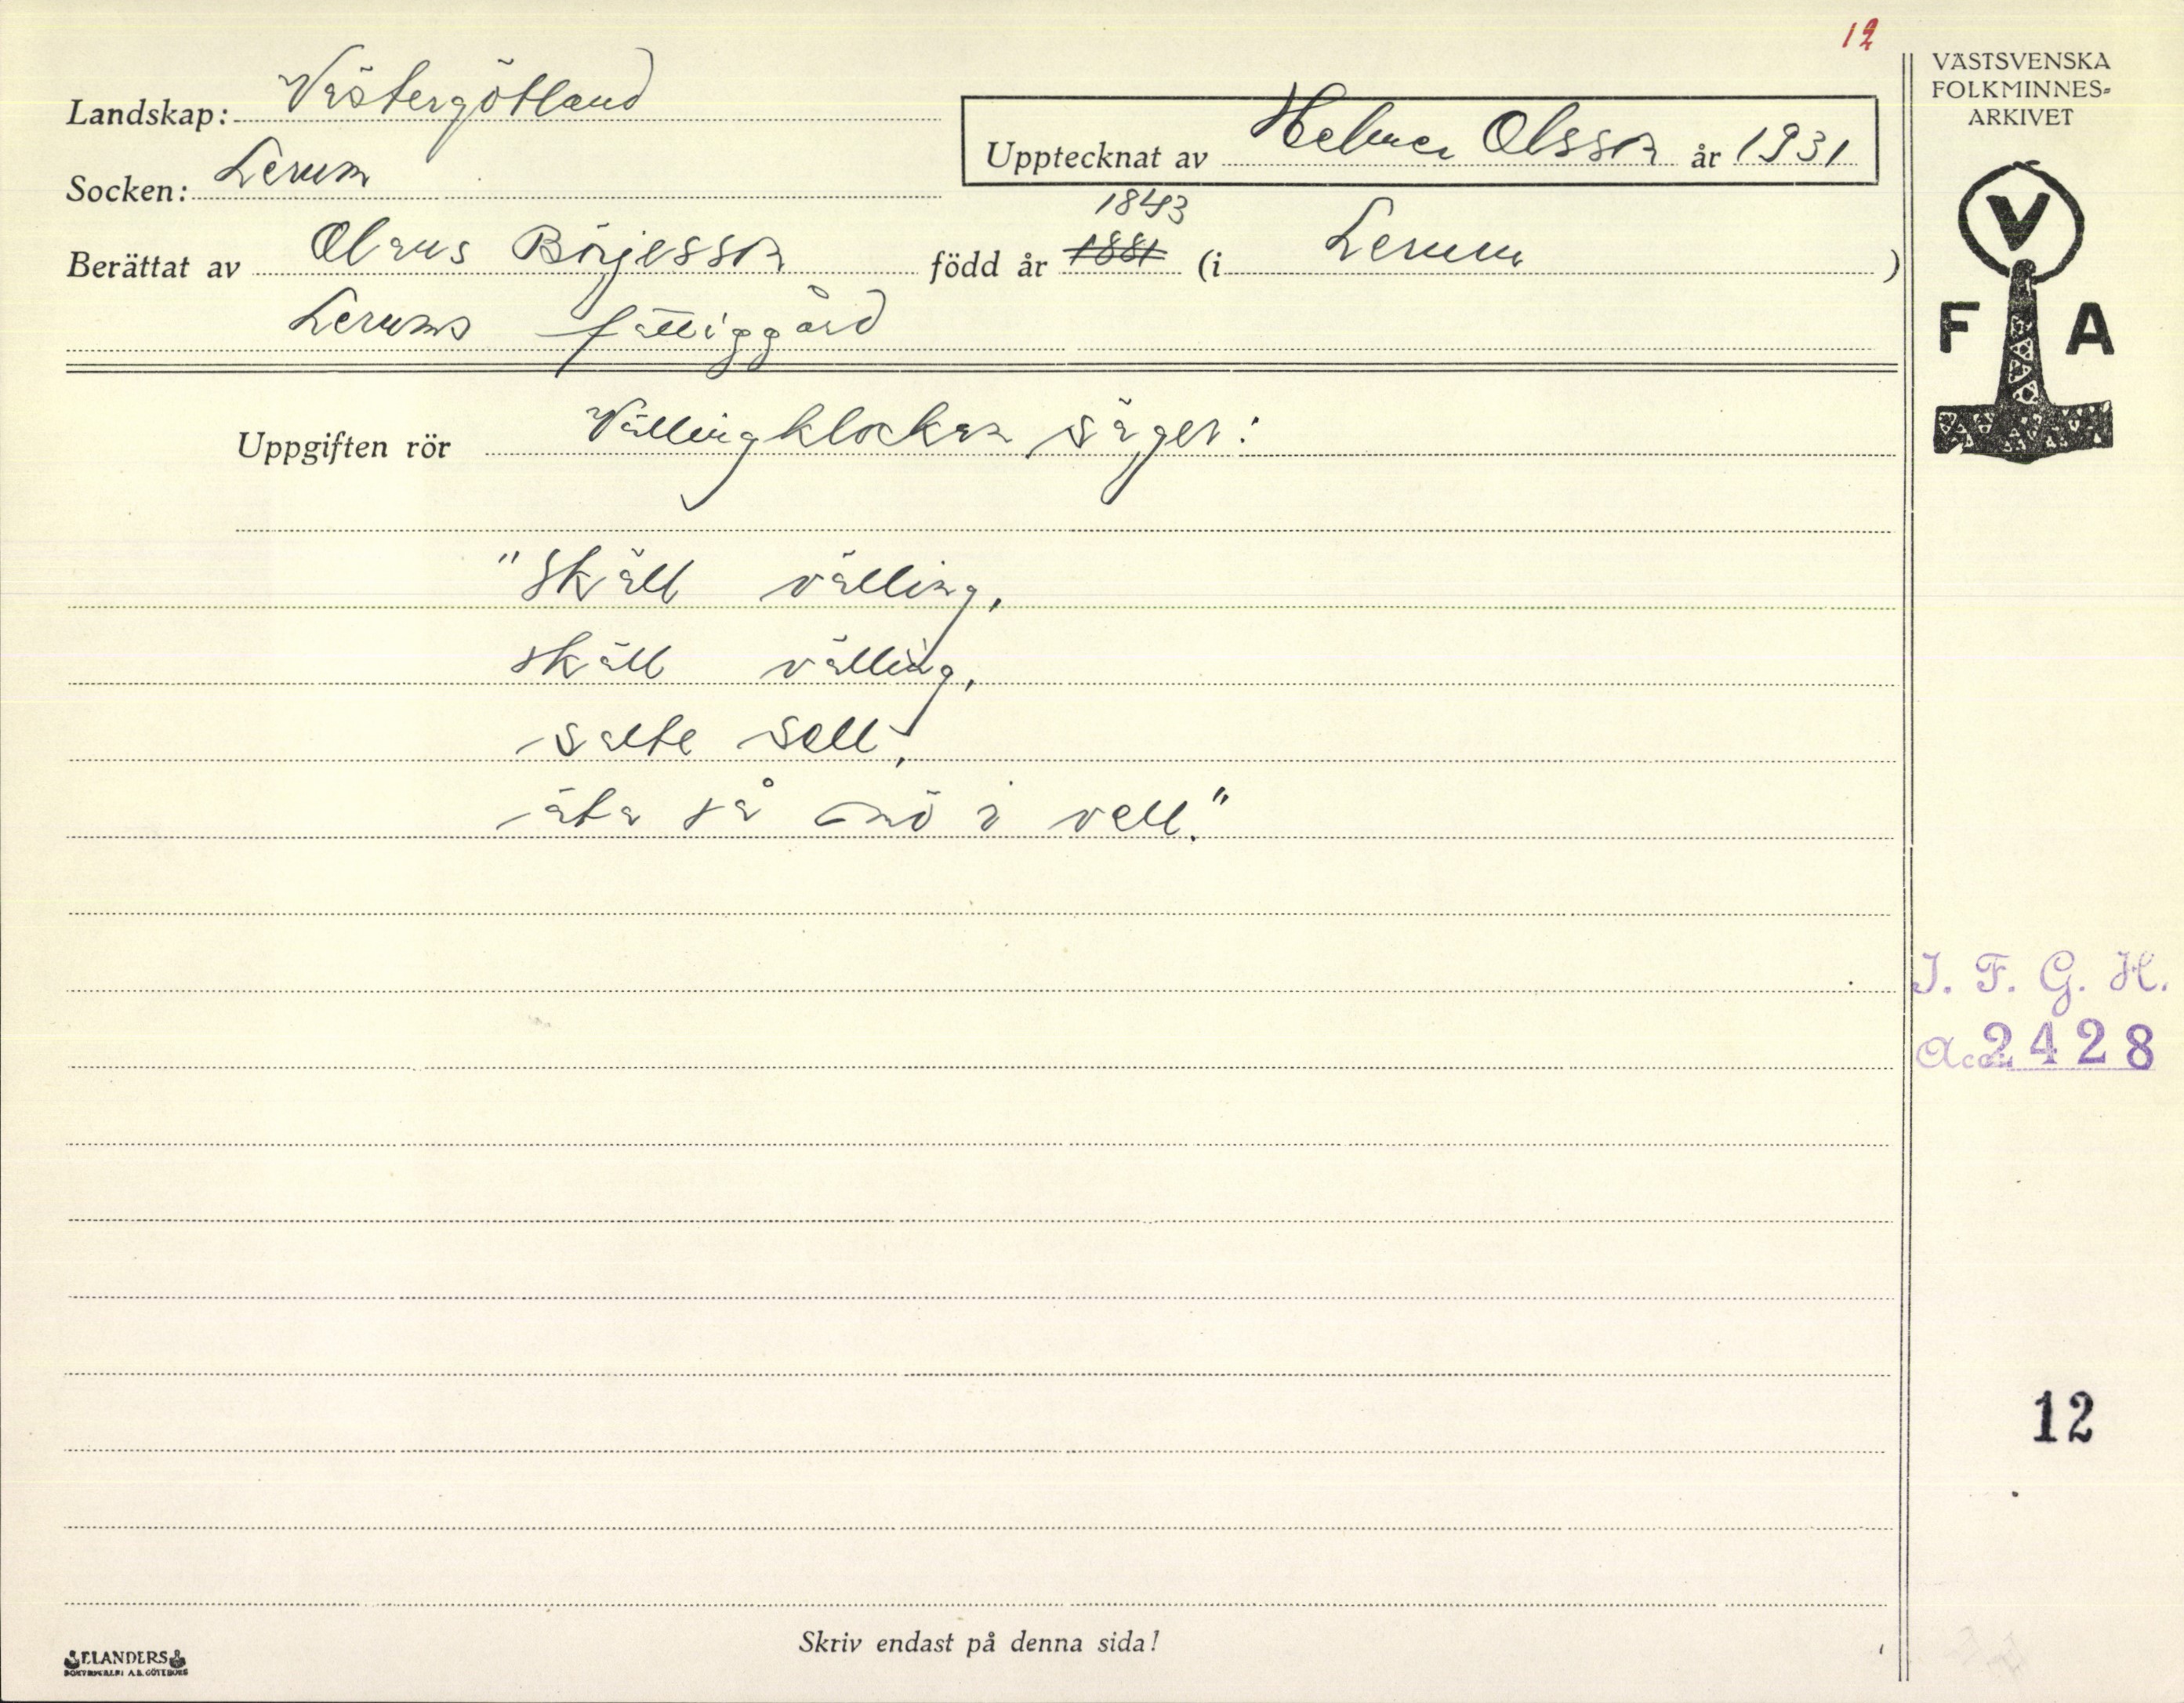 12
Landskap: Västergötland
Upptecknat av Helmer Olsson år 1931
Socken: Lerum
Berättat av Olaus Börjesson född år 1881 1843 (i Lerum)
Lerums fattiggård
Uppgiften rör Vällingklockan säger:
"Skäll välling,
skäll välling,
salte sell,
äta så mö i vell."
Skriv endast på denna sida!
ELANDERS
BOKTRYCKERI A.B. GÖTEBORG
VÄSTSVENSKA
FOLKMINNES-
ARKIVET
V
F A
I. F. G. H.
Acc. 2428
12